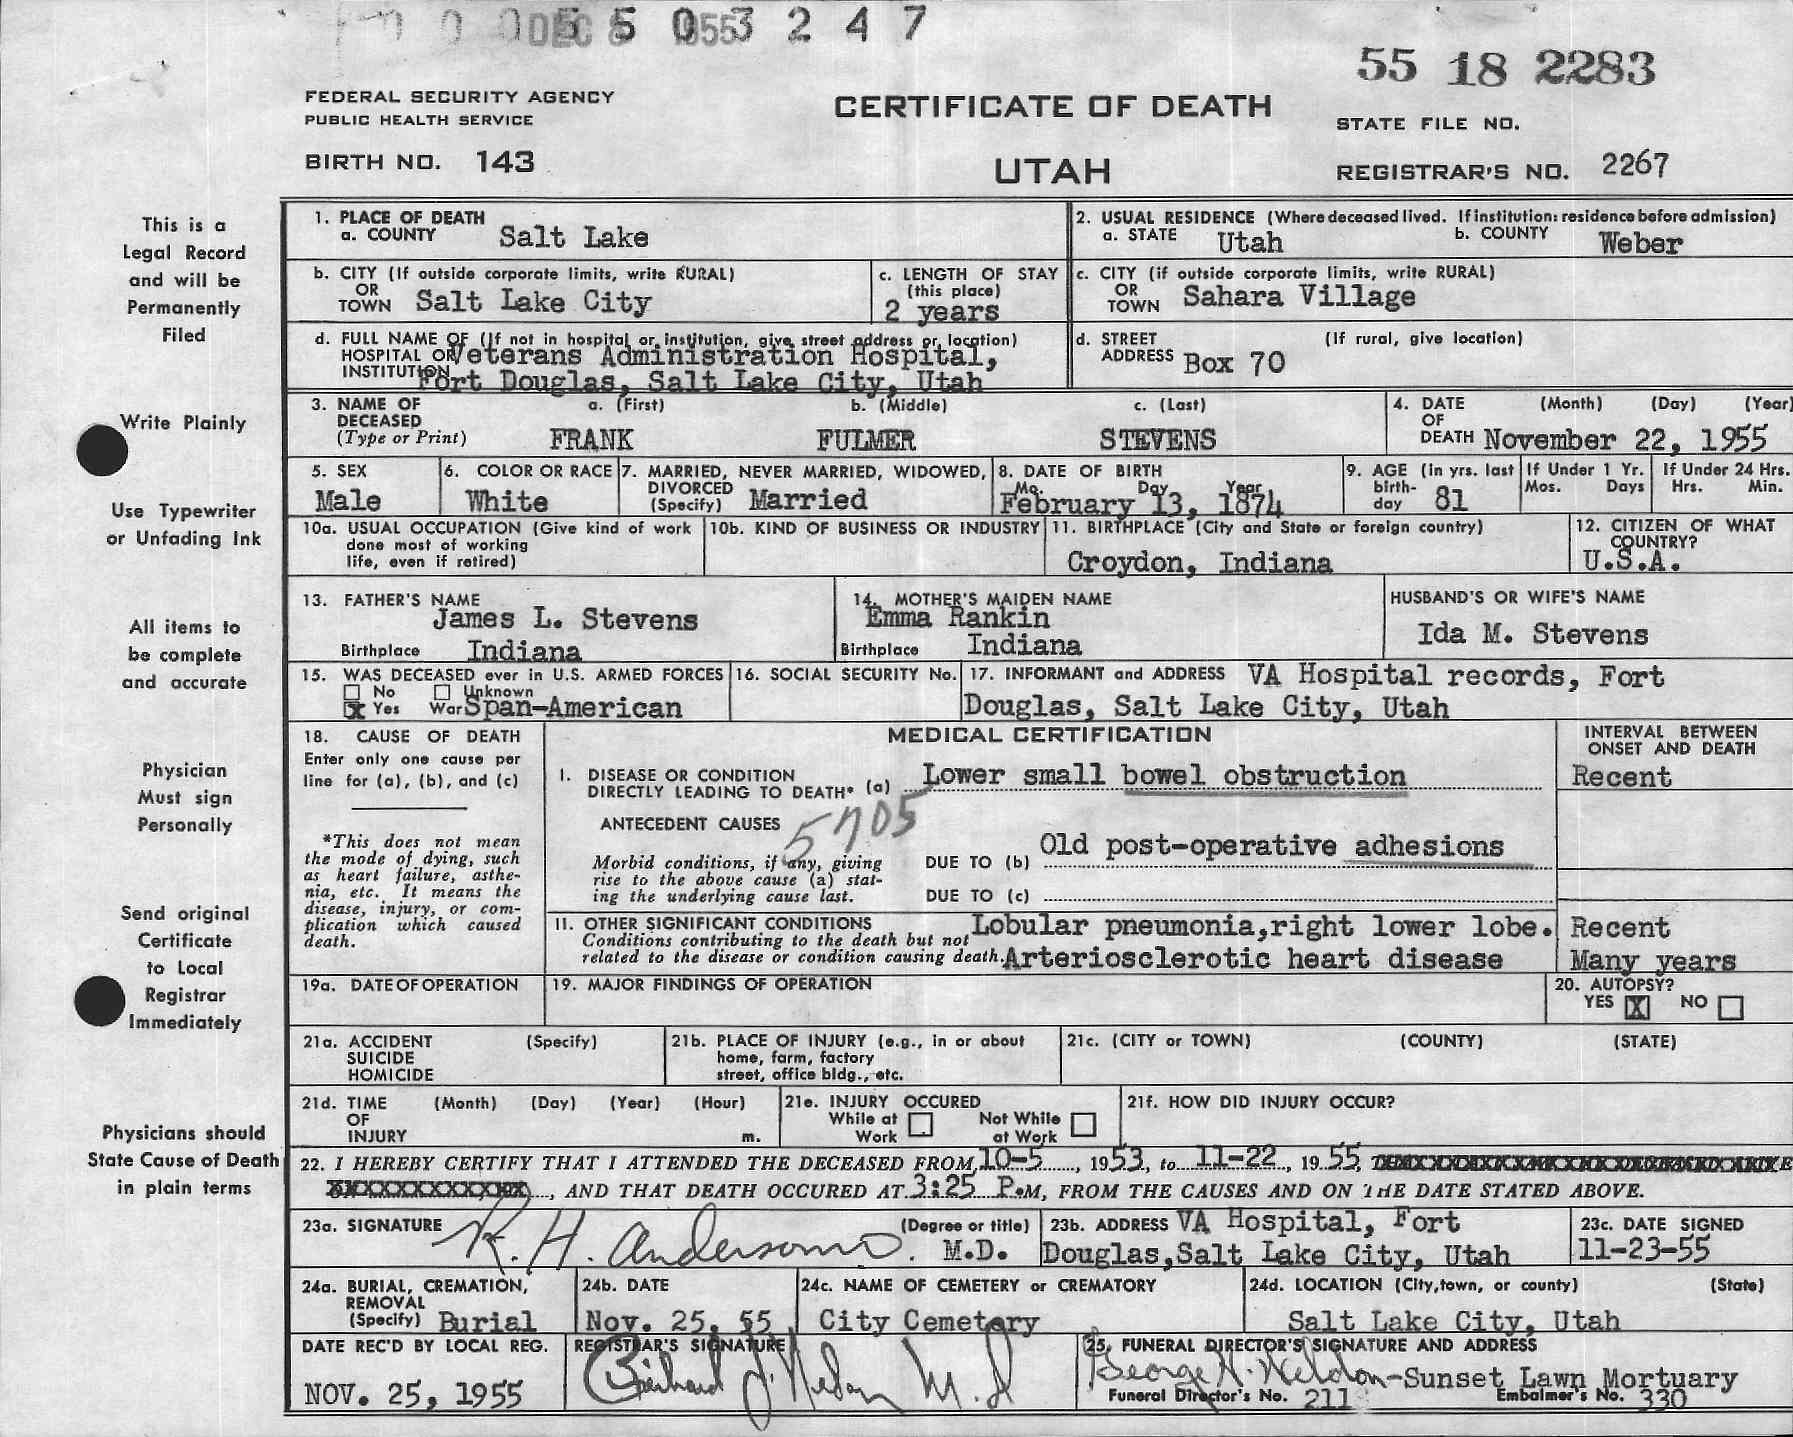 5 5 0 3 2 4 7
DEC 8 1955
55 18 2283
FEDERAL SECURITY AGENCY
PUBLIC HEALTH SERVICE
CERTIFICATE OF DEATH
STATE FILE NO.
BIRTH NO. 143
UTAH
REGISTRAR'S NO. 2267
This is a
Legal Record
and will be
Permanently
Filed
Write Plainly
Use Typewriter
or Unfading Ink
All items to
be complete
and accurate
Physician
Must sign
Personally
Send original
Certificate
to Local
Registrar
Immediately
Physicians should
State Cause of Death
in plain terms
1. PLACE OF DEATH
a. COUNTY Salt Lake
2. USUAL RESIDENCE (Where deceased lived. If institution: residence before admission)
a. STATE Utah b. COUNTY Weber
b. CITY (If outside corporate limits, write RURAL)
OR
TOWN Salt Lake City
c. LENGTH OF STAY
(this place)
2 years
c. CITY (if outside corporate limits, write RURAL)
OR
TOWN Sahara Village
d. FULL NAME OF (If not in hospital or institution, give street address or location)
HOSPITAL OR Veterans Administration Hospital,
INSTITUTION Fort Douglas, Salt Lake City, Utah
d. STREET (If rural, give location)
ADDRESS Box 70
3. NAME OF a. (First) b. (Middle) c. (Last)
DECEASED
(Type or Print) FRANK FULMER STEVENS
4. DATE (Month) (Day) (Year)
OF
DEATH November 22, 1955
5. SEX
Male
6. COLOR OR RACE
White
7. MARRIED, NEVER MARRIED, WIDOWED,
DIVORCED
(Specify) Married
8. DATE OF BIRTH
Mo. Day Year
February 13, 1874
9. AGE (In yrs. last
birth-
day 81
If Under 1 Yr.
Mos. Days
If Under 24 Hrs.
Hrs. Min.
10a. USUAL OCCUPATION (Give kind of work
done most of working
life, even if retired)
10b. KIND OF BUSINESS OR INDUSTRY
11. BIRTHPLACE (City and State or foreign country)
Croydon, Indiana
12. CITIZEN OF WHAT
COUNTRY?
U.S.A.
13. FATHER'S NAME
James L. Stevens
Birthplace Indiana
14. MOTHER'S MAIDEN NAME
Emma Rankin
Birthplace Indiana
HUSBAND'S OR WIFE'S NAME
Ida M. Stevens
15. WAS DECEASED ever in U.S. ARMED FORCES
No Unknown
x Yes War Span-American
16. SOCIAL SECURITY No.
17. INFORMANT and ADDRESS VA Hospital records, Fort
Douglas, Salt Lake City, Utah
18. CAUSE OF DEATH
Enter only one cause per
line for (a), (b), and (c)
*This does not mean
the mode of dying, such
as heart failure, asthe-
nia, etc. It means the
disease, injury, or com-
plication which caused
death.
MEDICAL CERTIFICATION
INTERVAL BETWEEN
ONSET AND DEATH
I. DISEASE OR CONDITION
DIRECTLY LEADING TO DEATH* (a) Lower small bowel obstruction
Recent
ANTECEDENT CAUSES
5705
Morbid conditions, if any, giving
rise to the above cause (a) stat-
ing the underlying cause last.
DUE TO (b) Old post-operative adhesions
DUE TO (c)
II. OTHER SIGNIFICANT CONDITIONS
Conditions contributing to the death but not
related to the disease or condition causing death.
Lobular pneumonia,right lower lobe. Recent
Arteriosclerotic heart disease Many years
19a. DATE OF OPERATION
19. MAJOR FINDINGS OF OPERATION
20. AUTOPSY?
YES X NO
21a. ACCIDENT (Specify)
SUICIDE
HOMICIDE
21b. PLACE OF INJURY (e.g., in or about
home, farm, factory
street, office bldg., etc.
21c. (CITY or TOWN) (COUNTY) (STATE)
21d. TIME (Month) (Day) (Year) (Hour)
OF
INJURY m.
21e. INJURY OCCURED
While at Work Not While at Work
21f. HOW DID INJURY OCCUR?
22. I HEREBY CERTIFY THAT I ATTENDED THE DECEASED FROM 10-5, 1953, to 11-22, 1955,
, AND THAT DEATH OCCURED AT 3:25 P.M, FROM THE CAUSES AND ON THE DATE STATED ABOVE.
23a. SIGNATURE (Degree or title)
R. H. Anderson M.D.
23b. ADDRESS VA Hospital, Fort
Douglas,Salt Lake City, Utah
23c. DATE SIGNED
11-23-55
24a. BURIAL, CREMATION,
REMOVAL
(Specify) Burial
24b. DATE
Nov. 25, 55
24c. NAME OF CEMETERY or CREMATORY
City Cemetery
24d. LOCATION (City,town, or county) (State)
Salt Lake City, Utah
DATE REC'D BY LOCAL REG.
NOV. 25, 1955
REGISTRAR'S SIGNATURE
25. FUNERAL DIRECTOR'S SIGNATURE AND ADDRESS
George N. Weldon-Sunset Lawn Mortuary
Funeral Director's No. 211 Embalmer's No. 330